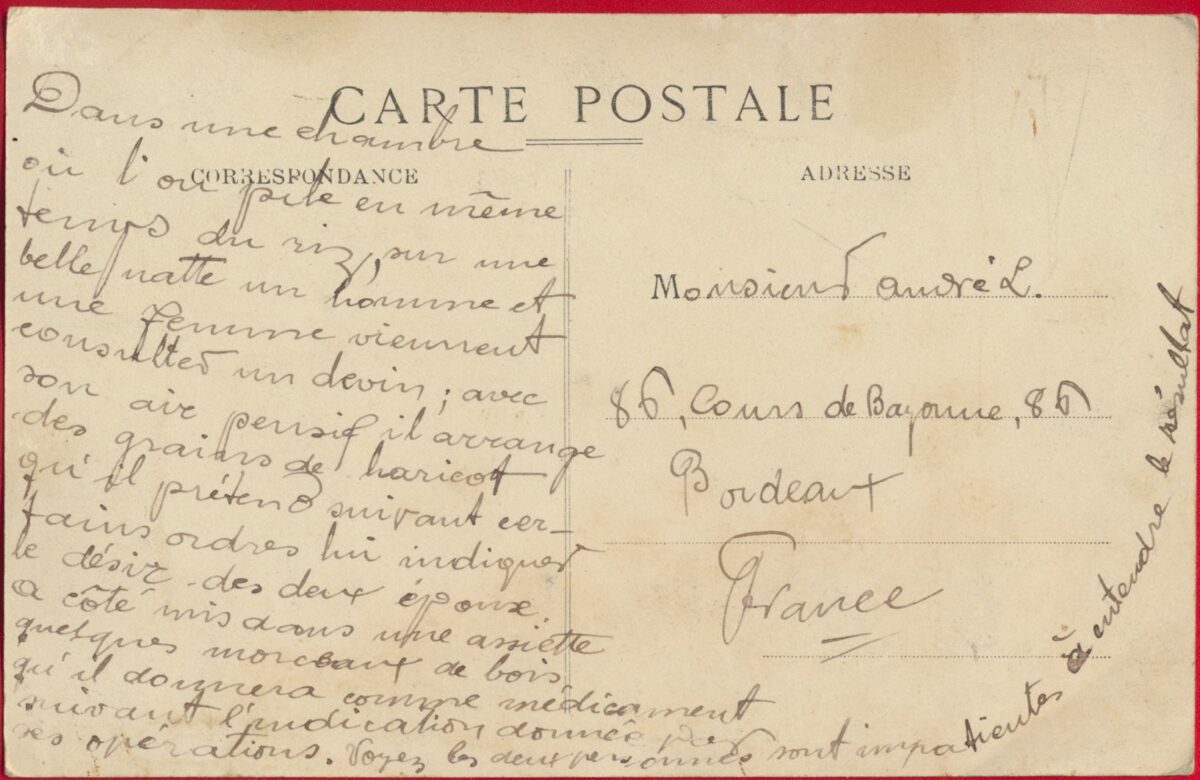 CARTE POSTALE
CORRESPONDANCE
Dans une chambre
où l'on pile en même
temps du riz, sur une
belle natte un homme et
une femme viennent
consulter un devin ; avec
son air pensif il arrange
des grains de haricot
qu'il prétend suivant cer-
tains ordres lui indiquer
le désir des deux époux.
a côté mis dans une assiette
quelques morceaux de bois
qu'il donnera comme médicament
suivant l'indication donnée par
ses opérations. Voyez les deux personnes sont impatientes à entendre le résultat
ADRESSE
Monsieur André L.
86, Cours de Bayonne, 86
Bordeaux
France